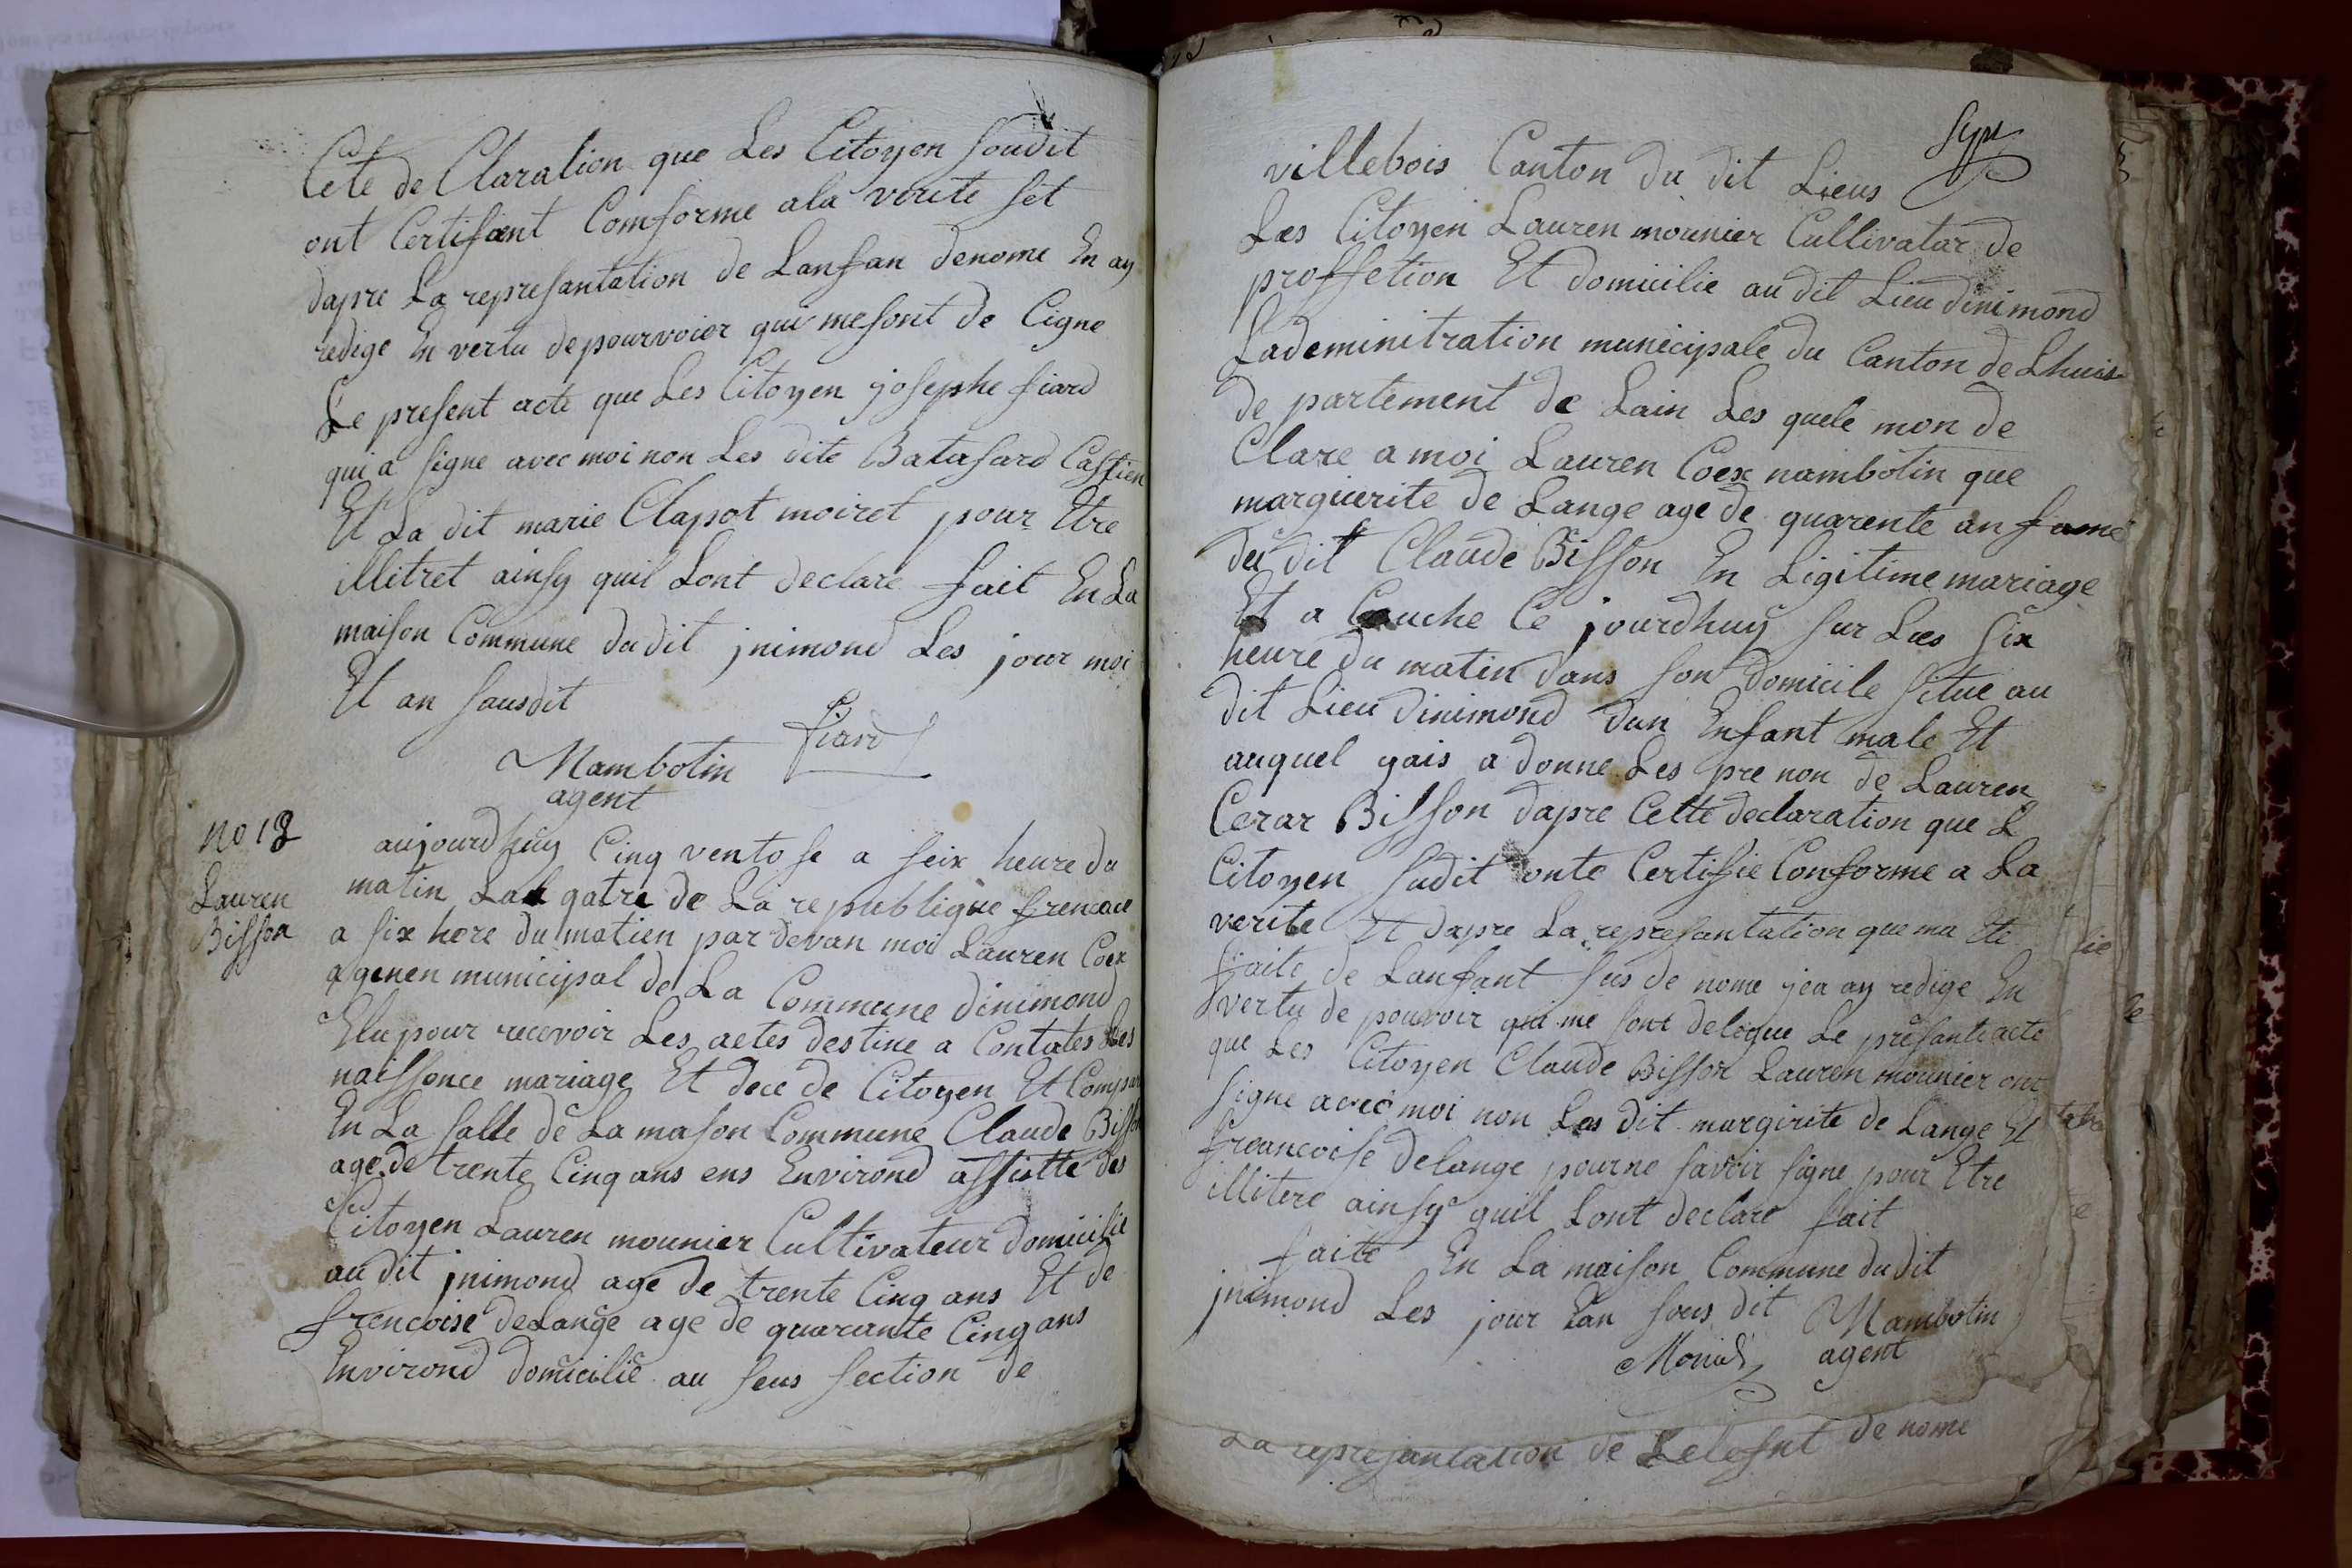 Cete de Claration que Les Citoyen Soudit
ont Certifient Comforme ala verite set
dapre La represantation de Lanfan denome En ay
redige En vertu depourvoier qui mesont de Cigne
Le present acte que Les Citoyen josephe fiard
qui a signe avec moi non Les dite Batasard Castien
Et La dit marie Clapot moiret pour Etre
illitret ainsy quil Lont declare fait En La
maison Commune du dit jnimond Les jour moi
Et an sausdit
fiard
Nambotin
agent
no 18
Lauren
Bisson
aujourdhuy Cinq ventose a seix heure du
matin Lad gatre de La republique frencace
a six hore du matien par devan moi Lauren Coex
agenen municipal de La Commune dinimond
Elu pour recevoir Les actes destine a Contates Les
naissonce mariage Et dece de Citoyen Et Compar
En La salle de La mason Commune Claude Bisson
age de trente Cinq ans ens Environd assiste des
Citoyen Lauren mounier Cultivateur domicilie
au dit jnimond age de trente Cinq ans Et de
francoise deLange age de quarante Cinq ans
Environd domicilie au seus section de
villebois Canton du dit Lieus
Les Citoyen Lauren mounier Cultivatar de
proffetion Et domicilie au dit Lieu dinimond
Lademinitration municipale du Canton de Lhuis
de partement de Lain Les quele mon de
Clare a moi Lauren Coex nambotin que
marguerite de Lange age de quarente an fame
du dit Claude Bisson En Ligitime mariage
Et a Couche Ce jourdhuy sur Les six
heure du matin dans son domicile situe au
dit Lieu dinimond dun Enfant male Et
auquel yais a donne Les pre non de Lauren
Cerar Bisson dapre Cette declaration que L
Citoyen sudit onte Certifie Conforme a La
verite Et dapre La represantation que ma Ete
faite de Lanfant sus de nome jea ay redige En
vertu de pouvoir qui me sont delegue Le presante acte
que Les Citoyen Claude Bisson Lauren mounier ont
signe avec moi non Les dit margirite de Lange Et
freancoise delange pour ne savoir signe pour Etre
illitere ainsy quil Lont declare fait
faite En La maison Commune du dit
jnimond Les jour Lan sous dit Nambotin
agent
La represantation de de nome